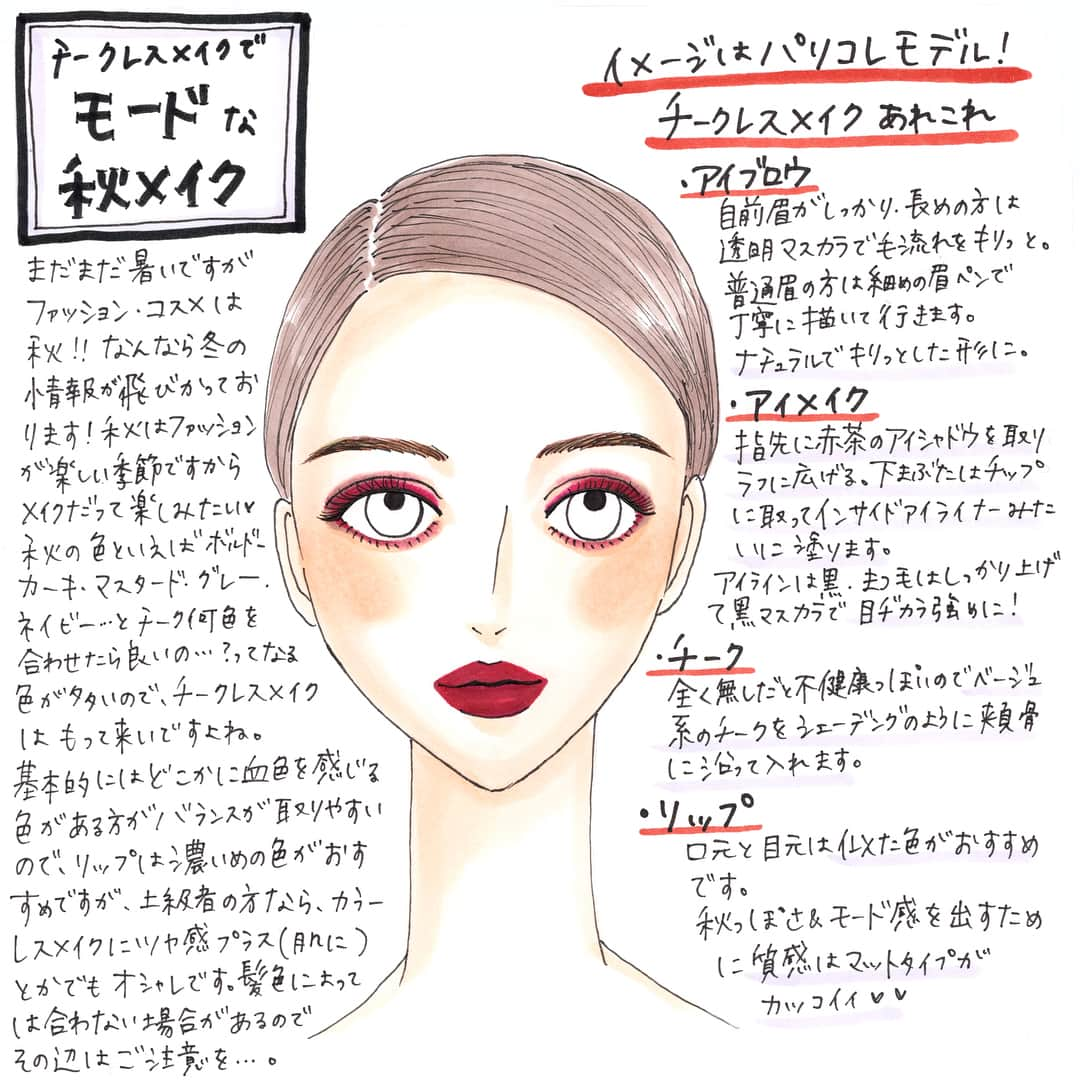 チークレスメイクで
モードな
秋メイク
まだまだ暑いですが
ファッション・コスメは
秋!! なんなら冬の
情報が飛びかってお
ります!秋はファッション
が楽しい季節ですから
メイクだって楽しみたい♥
秋の色といえばボルドー
カーキ・マスタード・グレー・
ネイビー…とチーク何色を
合わせたら良いの…?ってなる
色が多いので、チークレスメイク
はもって来いですよね。
基本的にはどこかに血色を感じる
色がある方がバランスが取りやすい
ので、リップは濃いめの色がおす
すめですが、上級者の方なら、カラー
レスメイクにツヤ感プラス(肌に)
とかでもオシャレです。髪色によって
は合わない場合があるので
その辺はご注意を…。
イメージはパリコレモデル!
チークレスメイクあれこれ
・アイブロウ
自前眉がしっかり・長めの方は
透明マスカラで毛流れをキリっと。
普通眉の方は細めの眉ペンで
丁寧に描いて行きます。
ナチュラルでキリっとした形に。
・アイメイク
指先に赤茶のアイシャドウを取り
ラフに広げる。下まぶたはチップ
に取ってインサイドアイライナーみた
いに塗ります。
アイラインは黒・まつ毛はしっかり上げ
て黒マスカラで目ヂカラ強めに!
・チーク
全く無しだと不健康っぽいのでベージュ
系のチークをシェーディングのように頬骨
に沿って入れます。
・リップ
口元と目元は似た色がおすすめ
です。
秋っぽさ&モード感を出すため
に質感はマットタイプが
カッコイイ♥♥